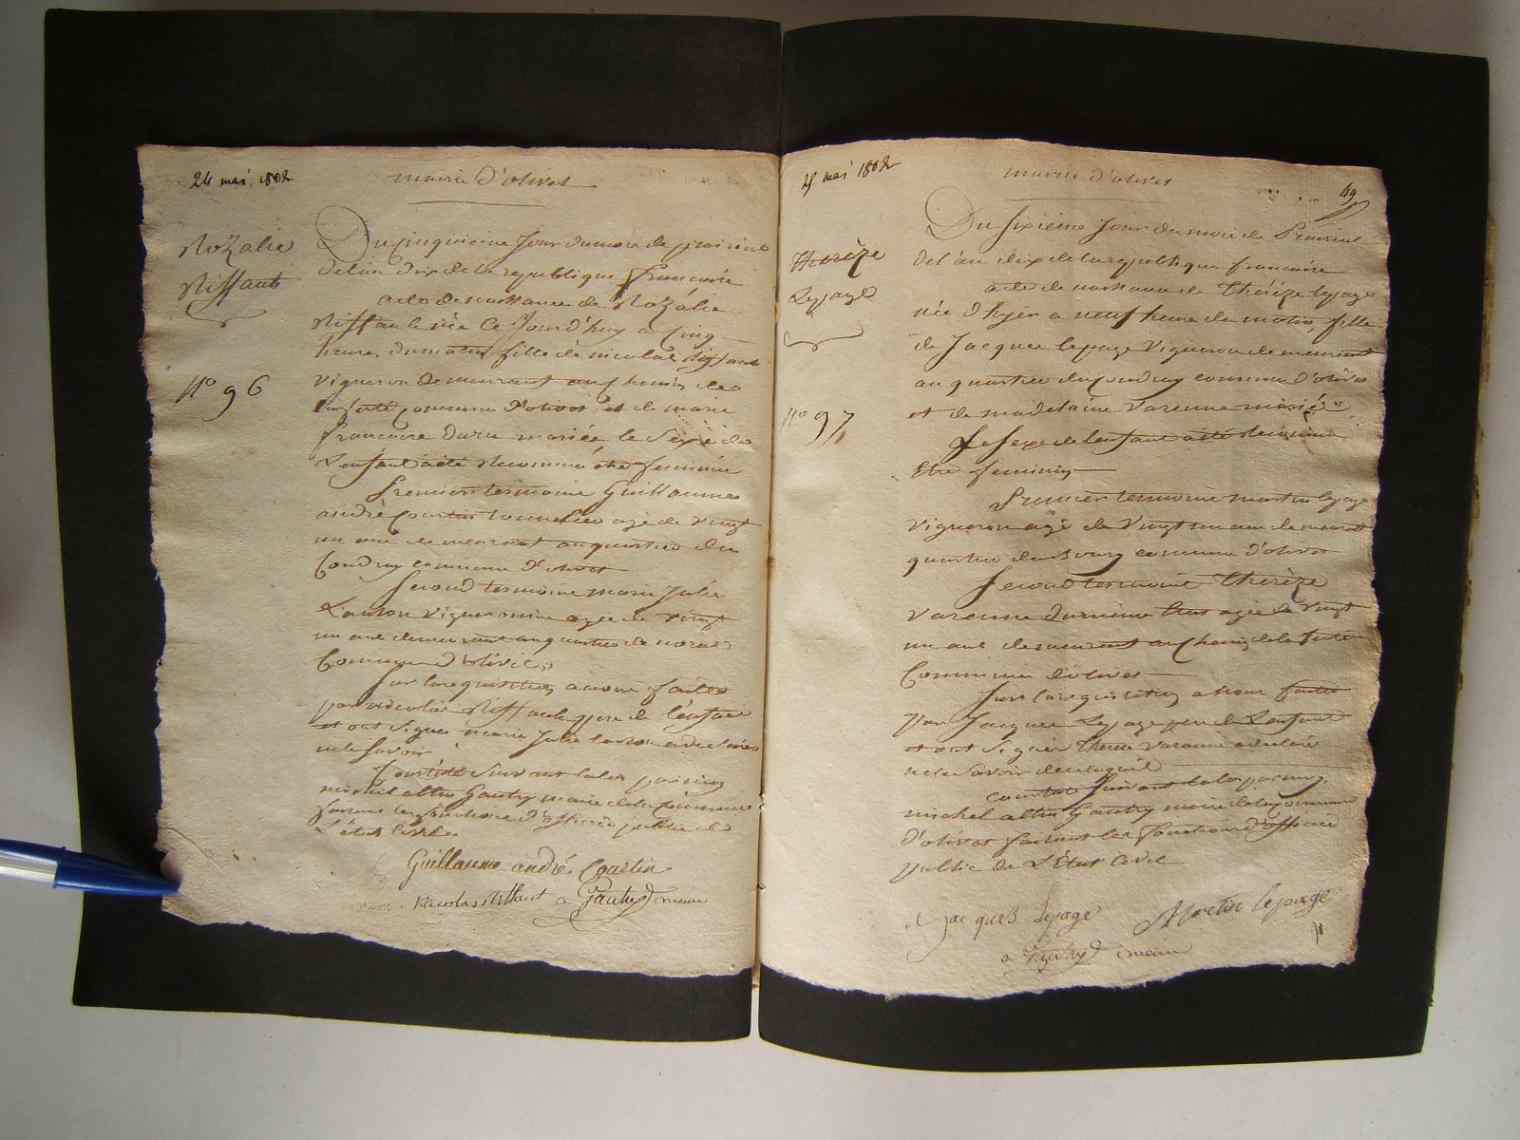 24 mai 1802
mairie d'olivet
Rozalie
Riffault
N° 96
Du cinquieme Jour du mois de prairial
de l'an dix de la republique francaise
acte de naissance de Rozalie
Riffault née Ce Jourd'huy a Cinq
heures du matin fille de nicolas Riffault
vigneron demeurant au chemin de
commune d'olivet et de marie
francoise Duru mariée le Sexe de
L'enfant a été reconnu etre feminin
premier temoin Guillaume
andré Courtin tonnelier agé de vingt
un ans demeurant au quartier du
Coudray commune d'olivet
Second temoin marie Julie
vigneronne agée de vingt
un ans demeurant au quartier de
Commune d'olivet
Sur la requisition a nous faite
par nicolas Riffault pere de l'enfant
et ont Signé marie Julie a declaré
ne le Savoir
Constaté Suivant la loi par moy
michel altin Gautry maire de la commune
faisant les fonctions d'officier public de
L'état Civil
Guillaume andré Courtin
Nicolas Riffaut a Gautry maire
25 mai 1802
mairie d'olivet
49
Therèze
Lepage
N° 97
Du Sixième Jour du mois de Prairial
de l'an dix de la republique francaise
acte de naissance de Thérèze lepage
née d'hyer a neuf heure du matin, fille
de Jacques lepage Vigneron demeurant
au quartier du coudray commune d'olivet
et de madelaine Varenne mariés
Le Sexe de l'enfant a été reconnu
Etre feminin
Premier temoin martin lepage
Vigneron agé de Vingt un ans demeurant
quartier du Bourg commune d'olivet
Second temoin therèze
Varenne agée de vingt
un ans demeurant au Chemin de la
Commune d'olivet
Sur la requisition a nous faite
Par Jacques Lepage pere de L'enfant
et ont Signé therese Varenne a declaré
ne le Savoir de ce requis
constaté Suivant la loi par moy
michel altin Gautry maire de la commune
d'olivet faisant les fonctions d'officier
public de L'État Civil
Jacques Lepage Martin lepage
a Gautry maire